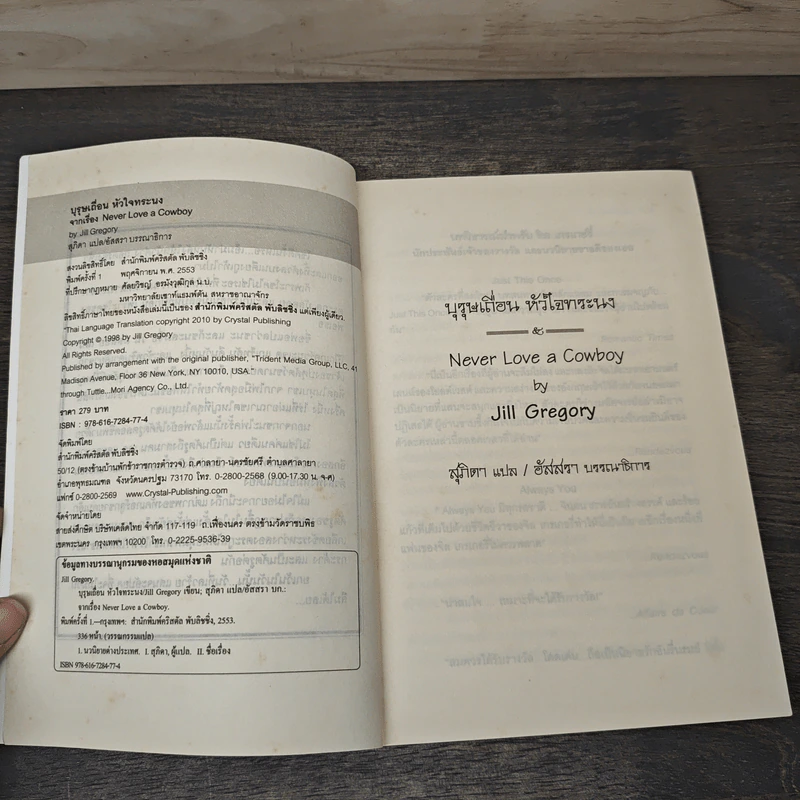 บุรุษเถื่อน หัวใจทระนง
จากเรื่อง Never Love a Cowboy
by Jill Gregory
สุภิดา แปล/อัสสรา บรรณาธิการ
สงวนลิขสิทธิ์โดย สำนักพิมพ์คริสตัล พับลิชชิ่ง
พิมพ์ครั้งที่ 1 พฤศจิกายน พ.ศ. 2553
ที่ปรึกษากฎหมาย ศัลยวิชญ์ อรมังวุฒิกุล น.บ.
มหาวิทยาลัยเซาท์แธมพ์ตัน สหราชอาณาจักร
ลิขสิทธิ์ภาษาไทยของหนังสือเล่มนี้เป็นของ สำนักพิมพ์คริสตัล พับลิชชิ่ง แต่เพียงผู้เดียว
"Thai Language Translation copyright 2010 by Crystal Publishing
Copyright © 1998 by Jill Gregory
All Rights Reserved.
Published by arrangement with the original publisher, "Trident Media Group, LLC, 41
Madison Avenue, Floor 36 New York, NY 10010, USA."
through Tuttle...Mori Agency Co., Ltd."
ราคา 279 บาท
ISBN : 978-616-7284-77-4
จัดพิมพ์โดย
สำนักพิมพ์คริสตัล พับลิชชิ่ง
50/12 (ตรงข้ามบ้านพักข้าราชการตำรวจ) ถ.ศาลายา-นครชัยศรี ตำบลศาลายา
อำเภอพุทธมณฑล จังหวัดนครปฐม 73170 โทร. 0-2800-2568 (9.00-17.30 น. จ-ศ)
แฟกซ์ 0-2800-2569 www.Crystal-Publishing.com
จัดจำหน่ายโดย
สายส่งศึกษิต บริษัทเคล็ดไทย จำกัด 117-119 ถ.เฟื่องนคร ตรงข้ามวัดราชบพิธ
เขตพระนคร กรุงเทพฯ 10200 โทร. 0-2225-9536-39
ข้อมูลทางบรรณานุกรมของหอสมุดแห่งชาติ
Jill Gregory.
บุรุษเถื่อน หัวใจทระนง/Jill Gregory เขียน; สุภิดา แปล/อัสสรา บก.:
จากเรื่อง Never Love a Cowboy.
พิมพ์ครั้งที่ 1.—กรุงเทพฯ: สำนักพิมพ์คริสตัล พับลิชชิ่ง, 2553.
336 หน้า. (วรรณกรรมแปล)
1. นวนิยายต่างประเทศ. I. สุภิดา, ผู้แปล. II. ชื่อเรื่อง
ISBN 978-616-7284-77-4
บุรุษเถื่อน หัวใจทระนง
&
Never Love a Cowboy
by
Jill Gregory
สุภิดา แปล / อัสสรา บรรณาธิการ